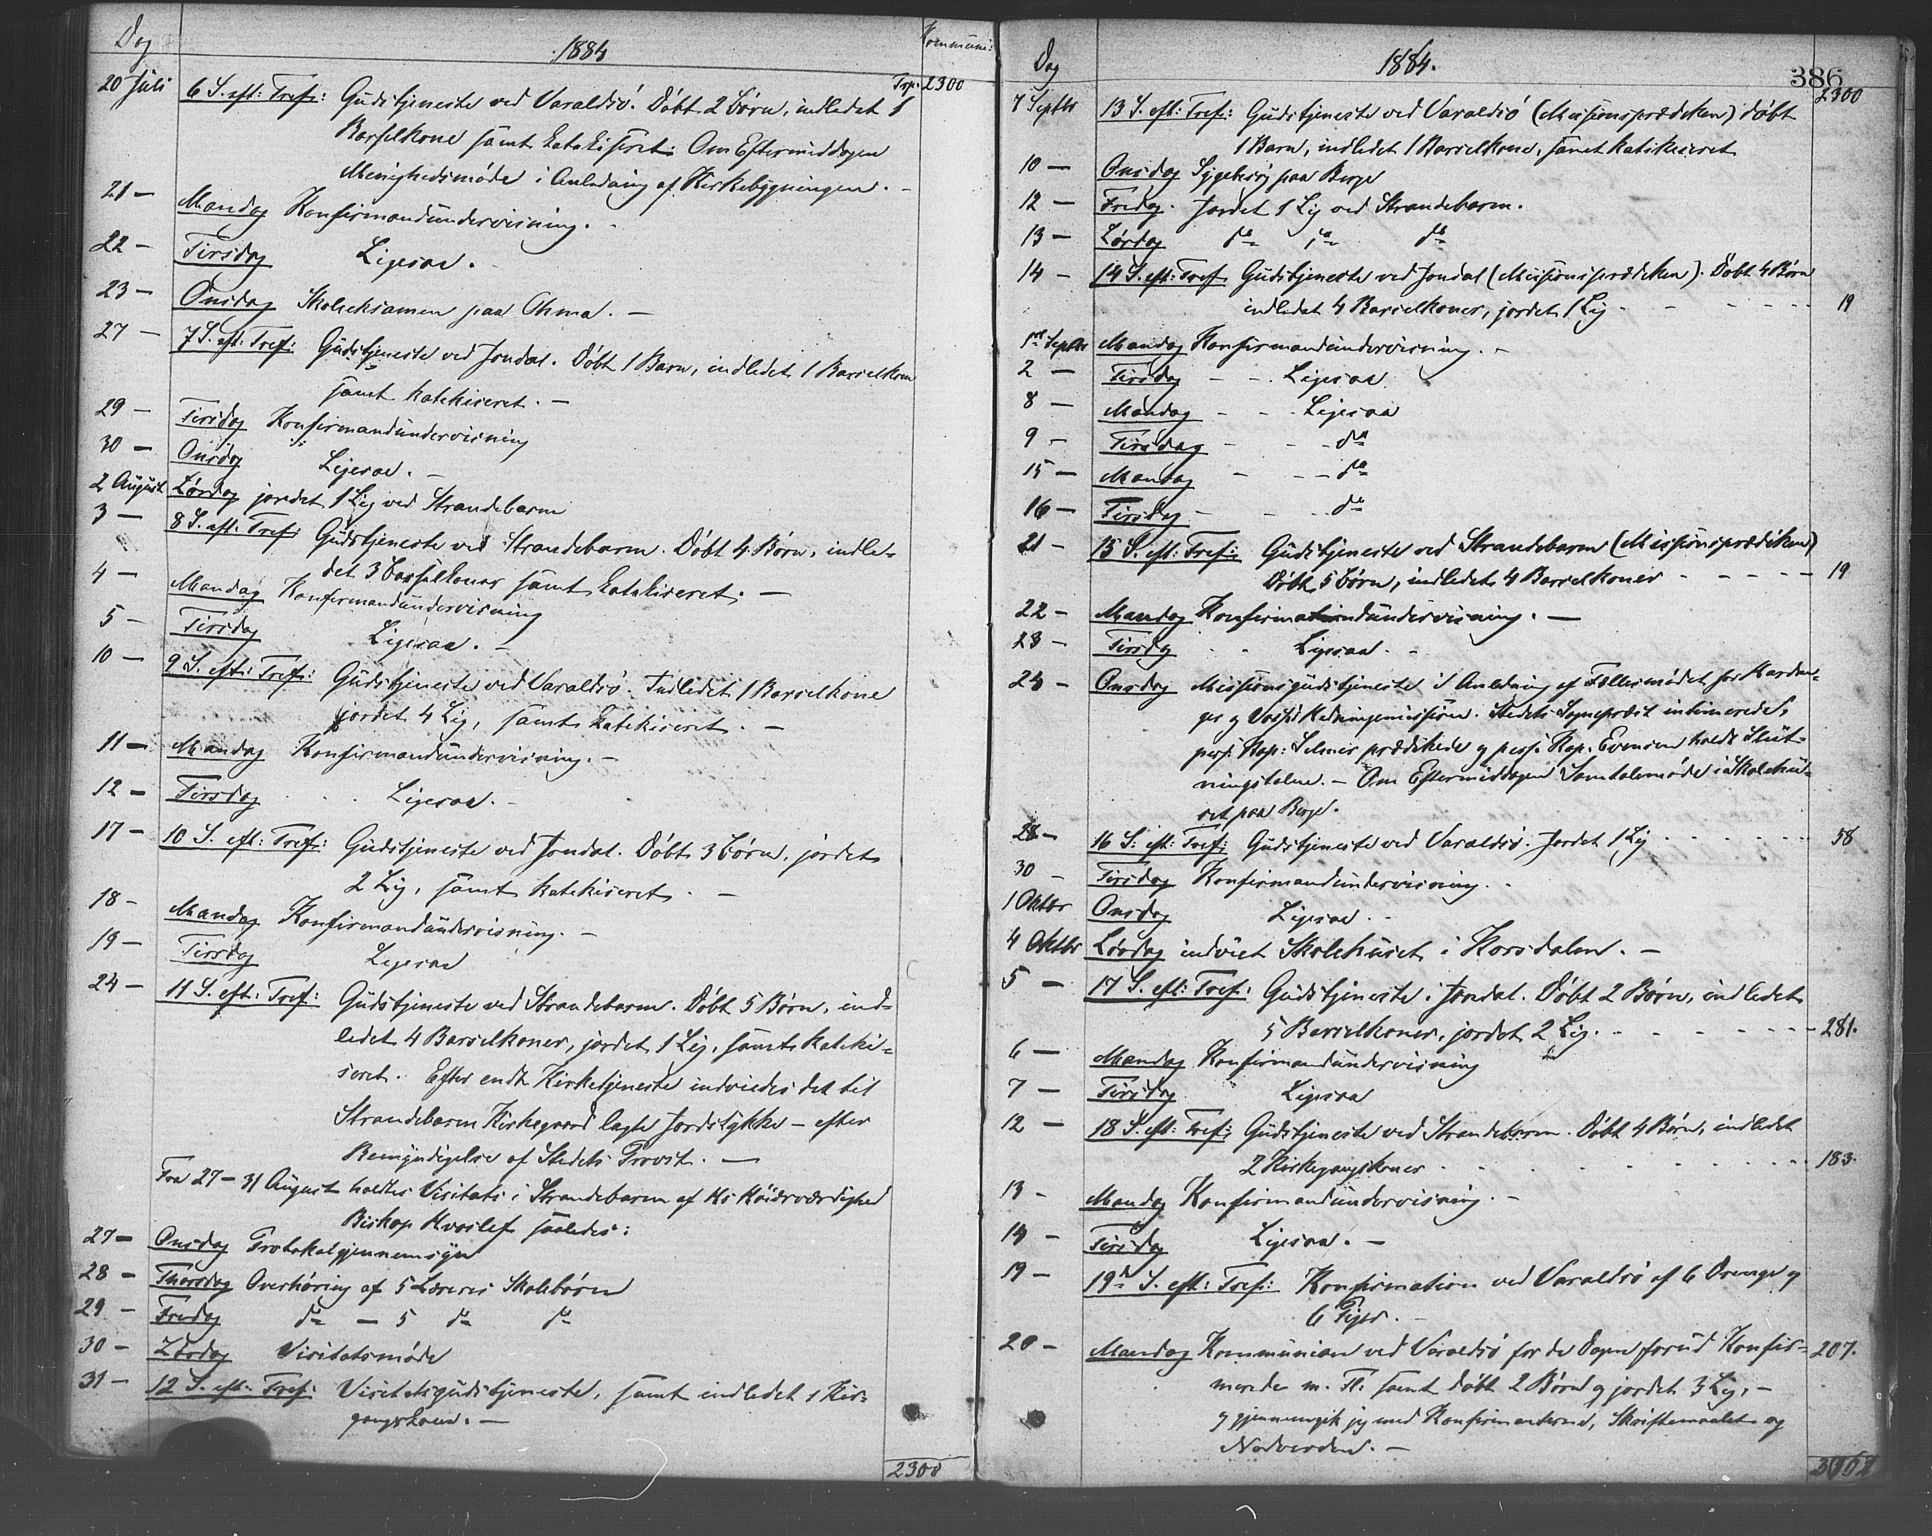 Dag
1884
Kommuni:
20 Juli 6 S. eft: Tref: Gudstjeneste ved Varaldsö. Döbt 2 Börn, indledet 1 Trp: 2300
Barselkone samt katekiseret. Om Eftermiddagen
Menighedsmöde i Anledning af Kirkebygningen. -
21 - Mandag Konfirmandundervisning. -
22 - Tirsdag Ligesaa. -
23 - Onsdag Skoleeksamen paa Ohma. -
27 - 7 S. eft: Tref: Gudstjeneste ved Jondal. Döbt 1 Barn, indledet 1 Barselkone
samt katekiseret. -
29 - Tirsdag Konfirmandundervisning
30 - Onsdag Ligesaa. -
2 August Lördag jordet 1 Lig ved Strandebarm
3 - 8 S. eft: Tref: Gudstjeneste ved Strandebarm. Döbt 4 Börn, indle-
det 3 Barselkoner samt katekiseret. -
4 - Mandag Konfirmandundervisning
5 - Tirsdag Ligesaa. -
10 - 9 S. eft: Tref: Gudstjeneste ved Varaldsö. Indledet 1 Barselkone
jordet 4 Lig, samt katekiseret. -
11 - Mandag Konfirmandundervisning. -
12 - Tirsdag Ligesaa. -
17 - 10 S. eft: Tref: Gudstjeneste ved Jondal. Döbt 3 Börn, jordet
2 Lig, samt katekiseret. -
18 - Mandag Konfirmandundervisning. -
19 - Tirsdag Ligesaa
24 - 11 S. eft: Tref: Gudstjeneste ved Strandebarm. Döbt 5 Börn, ind-
ledet 4 Barselkoner, jordet 1 Lig, samt kateki-
seret. Efter endt Kirketjeneste indviedes det til
Strandebarm Kirkegaard lagte Jordstykke - efter
Bemyndigelse af Stedets Provst. -
Fra 27 - 31 August holdtes Visitats i Strandebarm af Hs Höiærværdighed
Biskop Hvoslef saaledes:
27 - Onsdag Protokolgjennemsyn
28 - Thorsdag Overhöring af 5 Læreres Skolebörn
29 - Fredag do - 5 do do
30 - Lördag Visitatsmöde
31 - 12 S. eft: Tref: Visitatsgudstjeneste, samt indledet 1 Kir-
gangskone. -
2300
Dag
1884.
386
2300
7 Septbr 13 S. eft: Tref: Gudstjeneste ved Varaldsö (Missionsprædiken) döbt
1 Barn, indledet 1 Barselkone, samt katekiseret
10 - Onsdag Sygebesög paa Berge
12 - Fredag. Jordet 1 Lig ved Strandebarm.
13 - Lördag do 1 do do
14 - 14 S. eft: Tref. Gudstjeneste ved Jondal (Missionsprædiken). Döbt 4 Börn
indledet 4 Barselkoner, jordet 1 Lig - - - - 19
1ste Septbr Mandag Konfirmandundervisning. -
2 - Tirsdag - - Ligesaa
8 - Mandag - - Ligesaa
9 - Tirsdag - - - do
15 - Mandag - - - do
16 - Tirsdag - - - do
21 - 15 S. eft: Tref: Gudstjeneste ved Strandebarm (Missionsprædiken)
Döbt 5 Börn, indledet 4 Barselkoner - - - - - 19
22 - Mandag Konfirmandundervisning. -
23 - Tirsdag Ligesaa. -
24 - Onsdag Missionsgudstjeneste i Anledning af Fællesmödet for Hardan-
ger og Voss's Kredsingemission. Stedets Sognepræst intimerede,
pers: Kap: Selmer prædikede og pers: Kap. Evensen holdt Slut-
ningstalen. - Om Eftermiddagen Samtalemöde i Skolehu-
set paa Berge.
28 - 16 S. eft: Tref: Gudstjeneste ved Varaldsö. Jordet 1 Lig 58
30 - Tirsdag Konfirmandundervisning. -
1 Oktbr Onsdag Ligesaa. -
4 Oktbr Lördag indviet Skolehuset i Korsdalen. -
5 - 17 S. eft: Tref: Gudstjeneste i Jondal. Döbt 2 Börn, indledet
5 Barselkoner, jordet 2 Lig. - - - - - - 281.
6 - Mandag Konfirmandundervisning
7 - Tirsdag Ligesaa
12 - 18 S. eft: Tref: Gudstjeneste ved Strandebarm. Döbt 4 Börn, indledet
2 Kirkegangskoner - - - - - - 183.
13 - Mandag Konfirmandundervisning. -
14 - Tirsdag Ligesaa. -
19 - 19de S. eft: Tref: Konfirmation ved Varaldsö af 6 Drenge og
6 Piger. -
20 - Mandag Kommunion ved Varaldsö for de Dagen forud Konfir- 207.
merede m. Fl. samt döbt 2 Börn og jordet 3 Lig, -
og gjennemgik jeg med Konfirmanterne, Skriftemaalet og
Nadverden. -